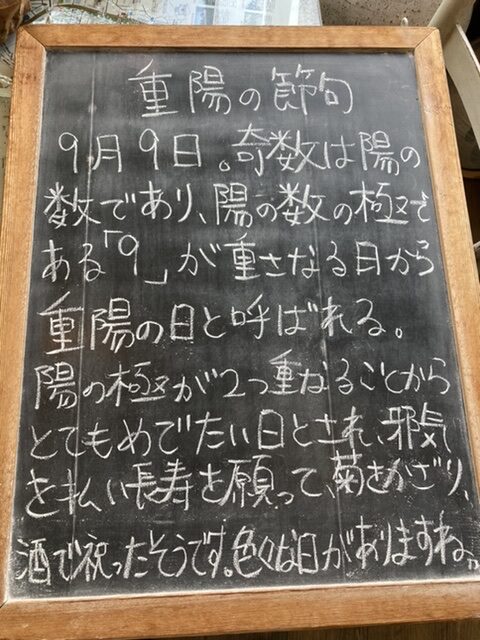 重陽の節句
9月9日。奇数は陽の
数であり、陽の数の極で
ある「9」が重さなる日から
重陽の日と呼ばれる。
陽の極が2つ重なることから
とてもめでたい日とされ、邪気
を払い長寿を願って、菊をかざり、
酒で祝ったそうです。色々な日がありますね。